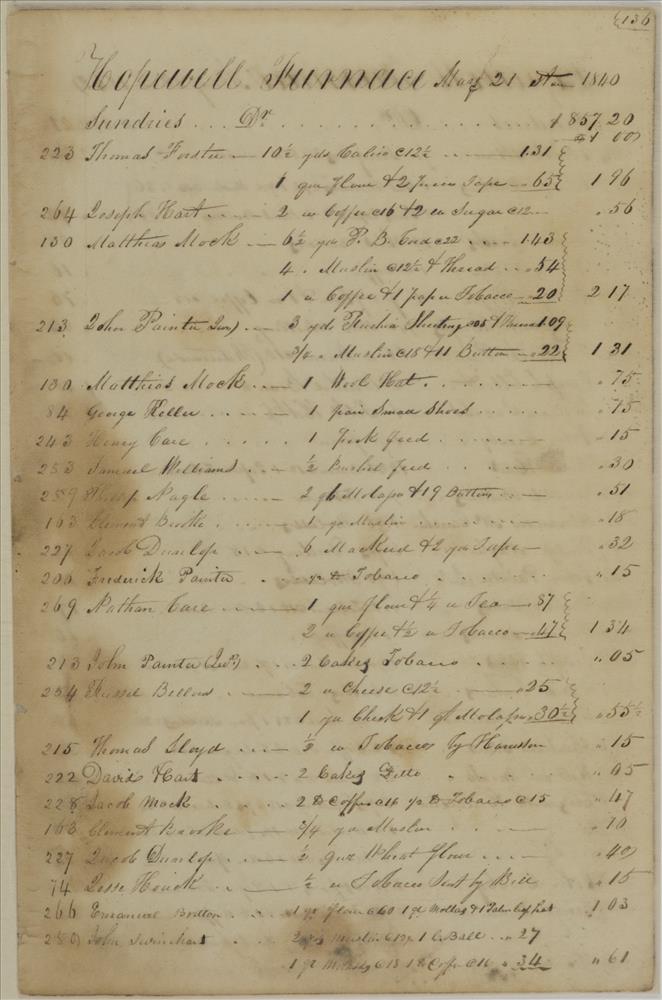 136
Hopewell Furnace May 21st 1840
Sundries . . . Dr . . . $857 20
223 Thomas Forster — 10½ yds Calico @12½ — 1.31
1 qur Flour & 2 Tape — 65 1 96
264 Joseph Hart — 2 lb Coffee @16 & 2 lb Sugar @12 — " 56
130 Matthias Mock — 6½ yds P. B. Cord @22 . . . 1.43
4 " Muslin @12½ & Thread . . " 54
1 lb Coffee & 1 paper Tobacco — 20 2 17
213 John Painter — 3 yds Russia Sheeting & 1.09
¾ " Muslin @18 & 11 Buttons — " 22 1 31
130 Matthias Mock — 1 Wool Hat . " 75
84 George Keller — 1 pair Small Shoes . . . " 75
243 Henry Care . . . 1 Peck feed . . . " 15
253 Samuel Williams . . — ½ Bushel feed . . . " 30
259 Nagle — 2 qts Molases & 19 Buttons . . — " 51
163 Clement Brooke . . . 1 yd Muslin . . . " 18
227 Jacob Dunlop — 6 Mackerel & 2 yds Tape — " 32
200 Frederick Painter . . . ½ lb Tobacco . . . " 15
269 Nathan Care — 1 qur flour & ¼ lb Tea — 87
2 lb Coffee & ½ lb Tobacco — 47 1 34
213 John Painter . . . 2 Cakes Tobacco . . . " 05
254 Russel Bellows — 2 lb Cheese @12½ — " 25
1 yd Check & 1 qt Molases " 30½ " 55½
215 Thomas Lloyd . . . — ½ lb Tobacco by Harrison " 15
222 David Hart . . . 2 Cakes Ditto . . " 05
228 Jacob Mock . . . 2 lb Coffee @16 ½ lb Tobacco @15 " 47
163 Clement Brooke — ¾ yd Muslin . . . " 10
227 Jacob Dunlop . . — ½ qur Wheat flour . . . " 40
74 Jesse Houck . . — ½ lb Tobacco Sent by Bill " 15
266 Emanuel Bratton . . . 1 qr Flour @60 1 qt & 1 Hat 1 03
250 John Swinehart . . . 2 yds Muslin 1 Ball . . " 27
1 qt @18 1 lb Coffee @16 " 34 " 61